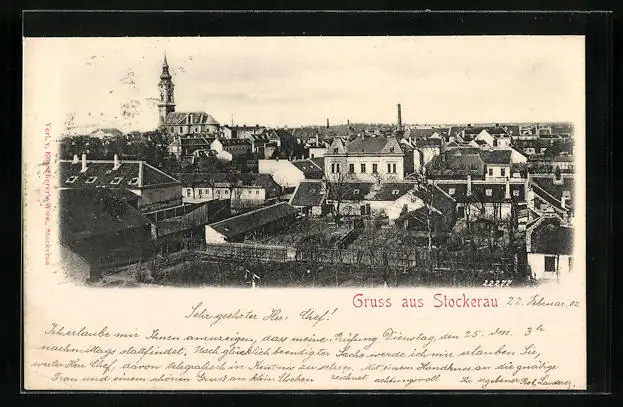 Verl. v. Wwe., Stockerau
22277
Gruss aus Stockerau 22. Februar. 02
Sehr geehrter Her: Chef!
Ich erlaube mir Ihnen anzuzeigen, dass meine Prüfung Dienstag, den 25. Im. 3h
nachmittags stattfindet. Nach glücklich beendigter Sache werde ich mir erlauben Sie,
werter Herr Chef, davon telegrafisch in Kentnis zu setzen. Mit einem Handkuss an die gnädige
Frau und einem schönen Gruß an klein zeichnet achtungsvoll Ihr ergebener Rob.